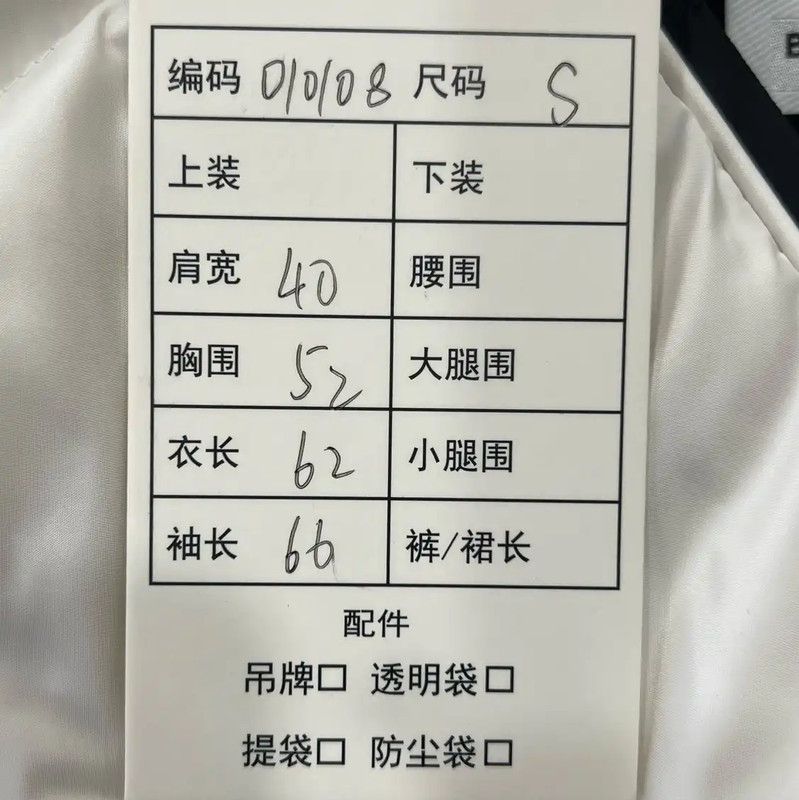 编码 010108 尺码 S
上装 下装
肩宽 40 腰围
胸围 52 大腿围
衣长 62 小腿围
袖长 66 裤/裙长
配件
吊牌□ 透明袋□
提袋□ 防尘袋□